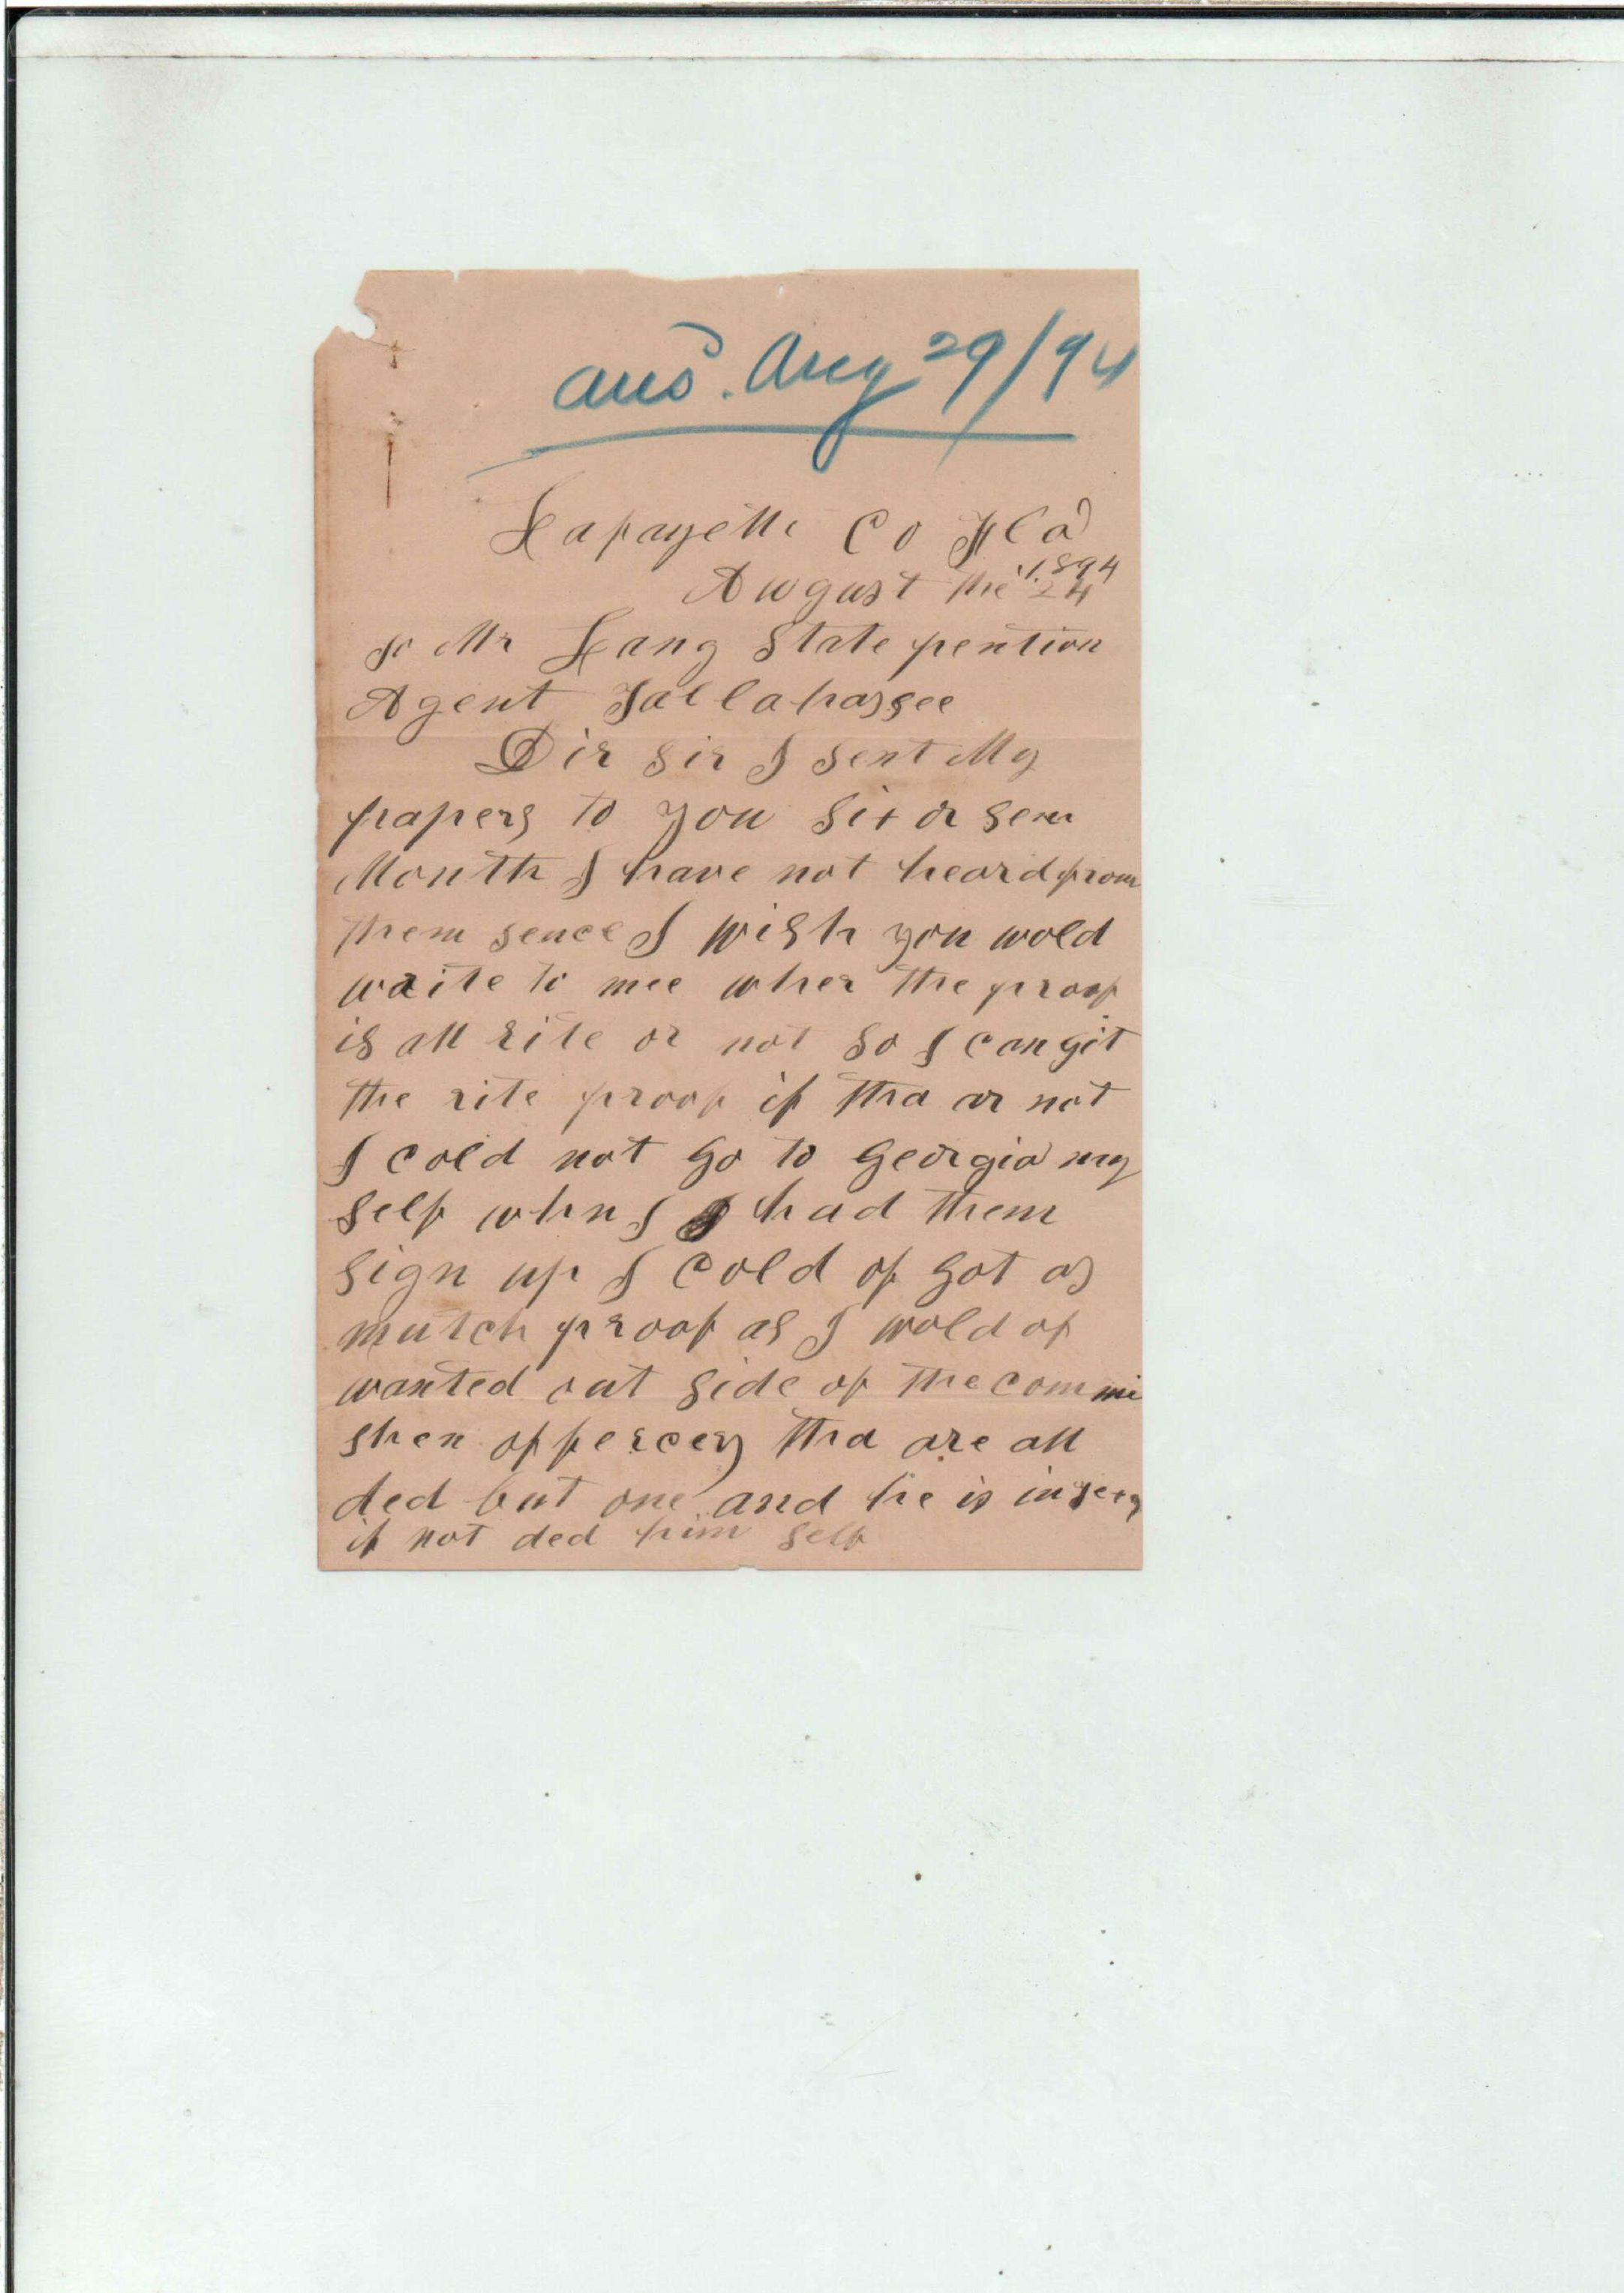 ans. Aug 29/94
Lafayette Co Fla
August the 24 1894
to Mr Lang State pention
Agent Tallahassee
Dir sir I sent My
papers to you six or sevn
Month I have not heard from
them sence I wish you wold
wraite to mee wher the proof
is all rite or not so I can git
the rite proof if tha ar not
I cold not go to Georgia my
self whn I had them
sign up I cold of got as
mutch proof as I wold of
wanted out side of the commi
shen offercers tha are all
ded but one and he is in
if not ded him self